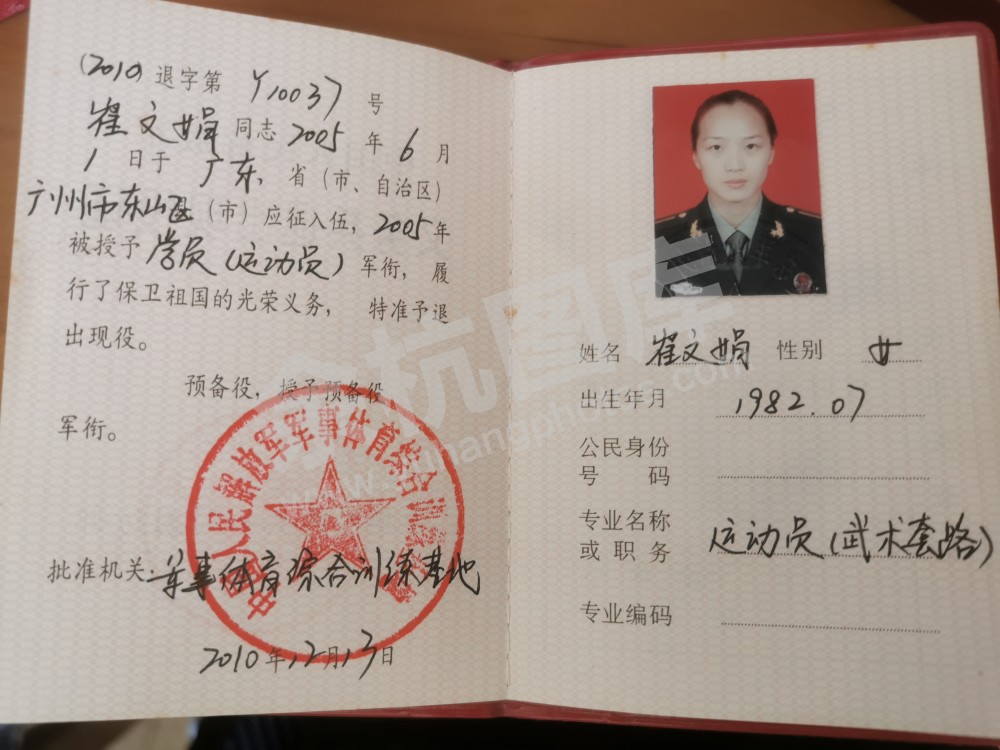 (2010) 退字第 Y10037 号
崔文娟同志2005年6月
1日于广东省(市、自治区)
广州市东山区(市)应征入伍,2005年
被授予学员(运动员)军衔,履
行了保卫祖国的光荣义务,特准予退
出现役。
预备役,授予预备役
军衔。
中国人民解放军军事体育综合训练基地
批准机关:军事体育综合训练基地
2010年12月13日
姓名 崔文娟 性别 女
出生年月 1982.07
公民身份
号 码
专业名称 运动员(武术套路)
或职务
专业编码
杭图库